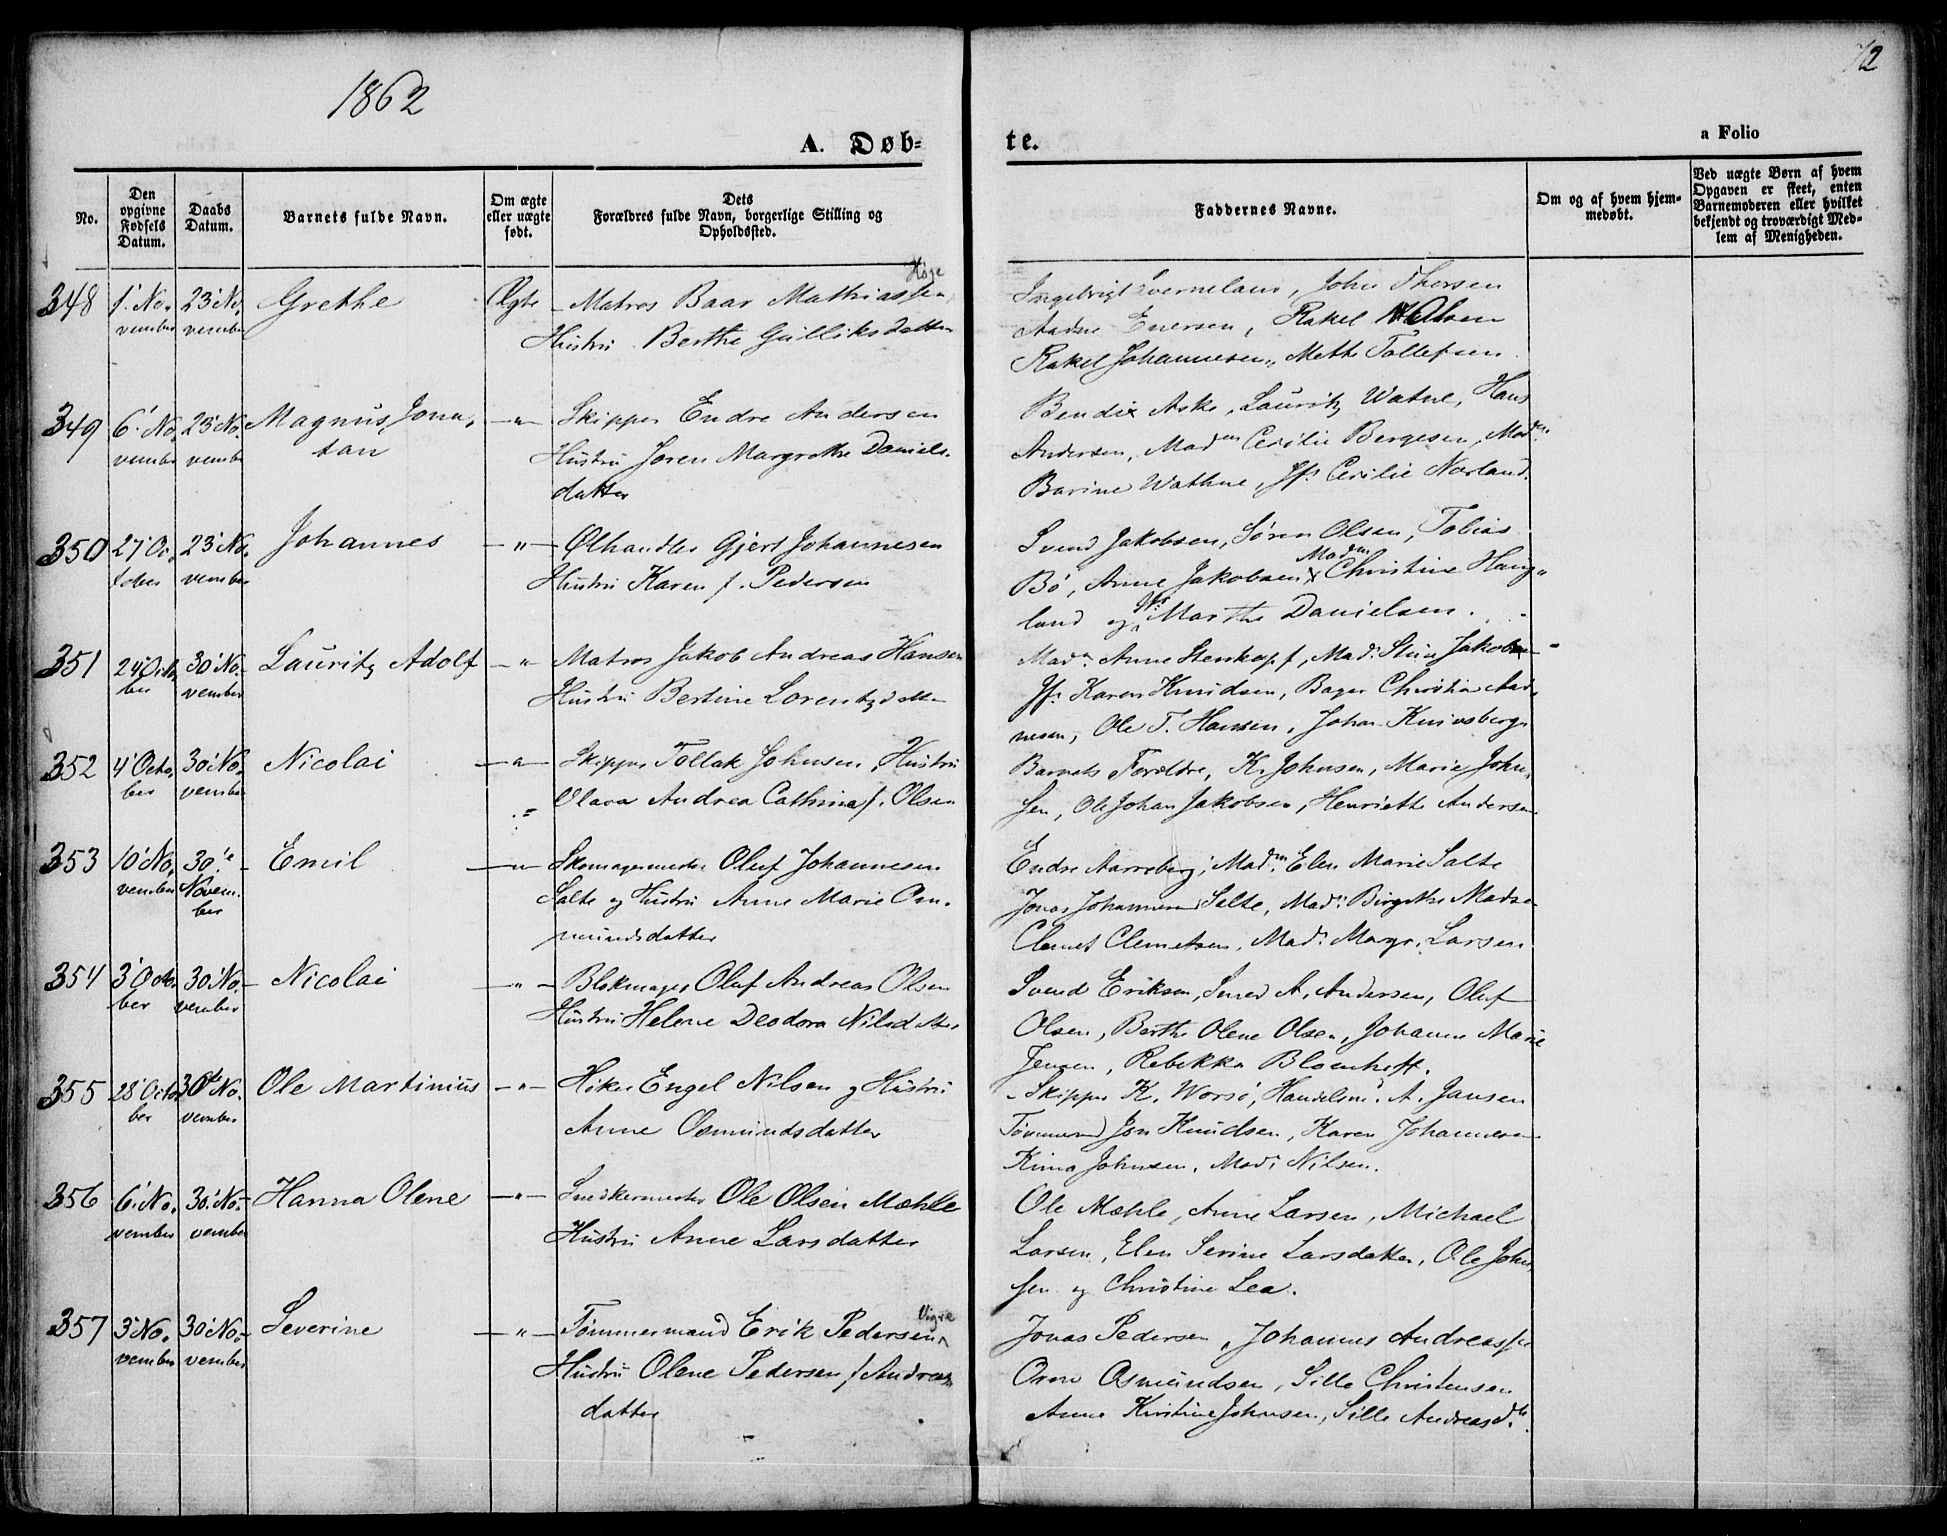 1862
72
A. Døb-
te.
a Folio
No.
Den opgivne Fødsels Datum.
Daabs Datum.
Barnets fulde Navn.
Om ægte eller uægte født.
Dets Forældres fulde Navn, borgerlige Stilling og Opholdssted.
Faddernes Navne.
Om og af hvem hjemmedøbt.
Ved uægte Børn af hvem Opgaven er skeet, enten Barnemoderen eller hvilket bekjendt og troværdigt Medlem af Menigheden.
348 1' No. 23' No. Grethe Ægte – Matros Baar Mathiassen Høje
vember vember Hustru Berthe Gulliksdatter
Ingebrigt Sverneland, John Thorsen
Aadne Enersen, Rakel
Rakel Johannesen, Mette Tollefsen
349 6' No. 23' No. Magnus Jona- –"– Skipper Endre Andersen
vember vember tan Hustru Joren Margrethe Daniels-
datter
Bendix Aske, Lauritz Watne, Hans
Andersen, Madm Cecilie Bergesen, Madm
Barine Wathne, Jfr Cecilie Nærland.
350 27' Oc- 23' No. Johannes –"– Ølhandler Gjert Johannesen
tober vember Hustru Karen f. Pedersen
Svend Jakobsen, Søren Olsen, Tobias
Bö, Anne Jakobsen, Madm Christine Haug-
land og Jfr Marthe Danielsen.
351 24' Octo- 30' No- Lauritz Adolf –"– Matros Jakob Andreas Hansen
ber vember Hustru Bertine Lorentzdatter
Mad. Anne Stenkopf, Mad. Stine Jakobsen
Jfr Karen Knudsen, Bager Christian Aad-
nesen, Ole T. Hansen, Johan Knivsberg
352 4' Octo- 30' No. Nicolai –"– Skipper Tollak Johnsen, Hustru
ber vember Olava Andrea Cathrina f. Olsen
Barnets Forældre, K. Johnsen, Marie John-
sen, Ole Johan Jakobsen, Henriette Andersen
353 10' No. 30'te Emil –"– Skomagermester Oluf Johannesen
vember Novem- Salte og Hustru Anne Marie Os-
ber mundsdatter
Endre Aarreberg, Madm. Elen Marie Salte
Jonas Johannesen Salte, Mad. Birgethe Madsen
Clemet Clemetsen, Mad. Margr. Larsen
354 3' Octo- 30' No. Nicolai –"– Blokmager Oluf Andreas Olsen
ber vember Hustru Helene Deodora Nilsdatter
Svend Eriksen, Smed A. Andersen, Oluf
Olsen, Berthe Olene Olsen, Johanne Marie
Jensen, Rebekka Blomhoff.
355 28' Octo- 30te No. Ole Martinius –"– Høker Engel Nilsen og Hustru
ber vember Anne Osmundsdatter
Skipper K. Worsö, Handelsm. A. Jansen
Tömmermand Jon Knudsen, Karen Johannesen
Kima Johnsen, Mad. Nilsen.
356 6' No. 30' No. Hanna Olene –"– Snedkermester Ole Olsen Mæhle
vember vember Hustru Anne Larsdatter
Ole Mæhle, Anne Larsen, Michael
Larsen, Elen Serine Larsdatter, Ole John-
sen og Christine Lea.
357 3' No. 30' No. Severine –"– Tømmermand Erik Pedersen Vigre
vember vember Hustru Olene Pedersen f. Andreas-
datter
Jonas Pedersen, Johannes Andreassen
Osmund Osmundsen, Sille Christensen
Anne Kirstine Johnsen, Sille Andreasd.